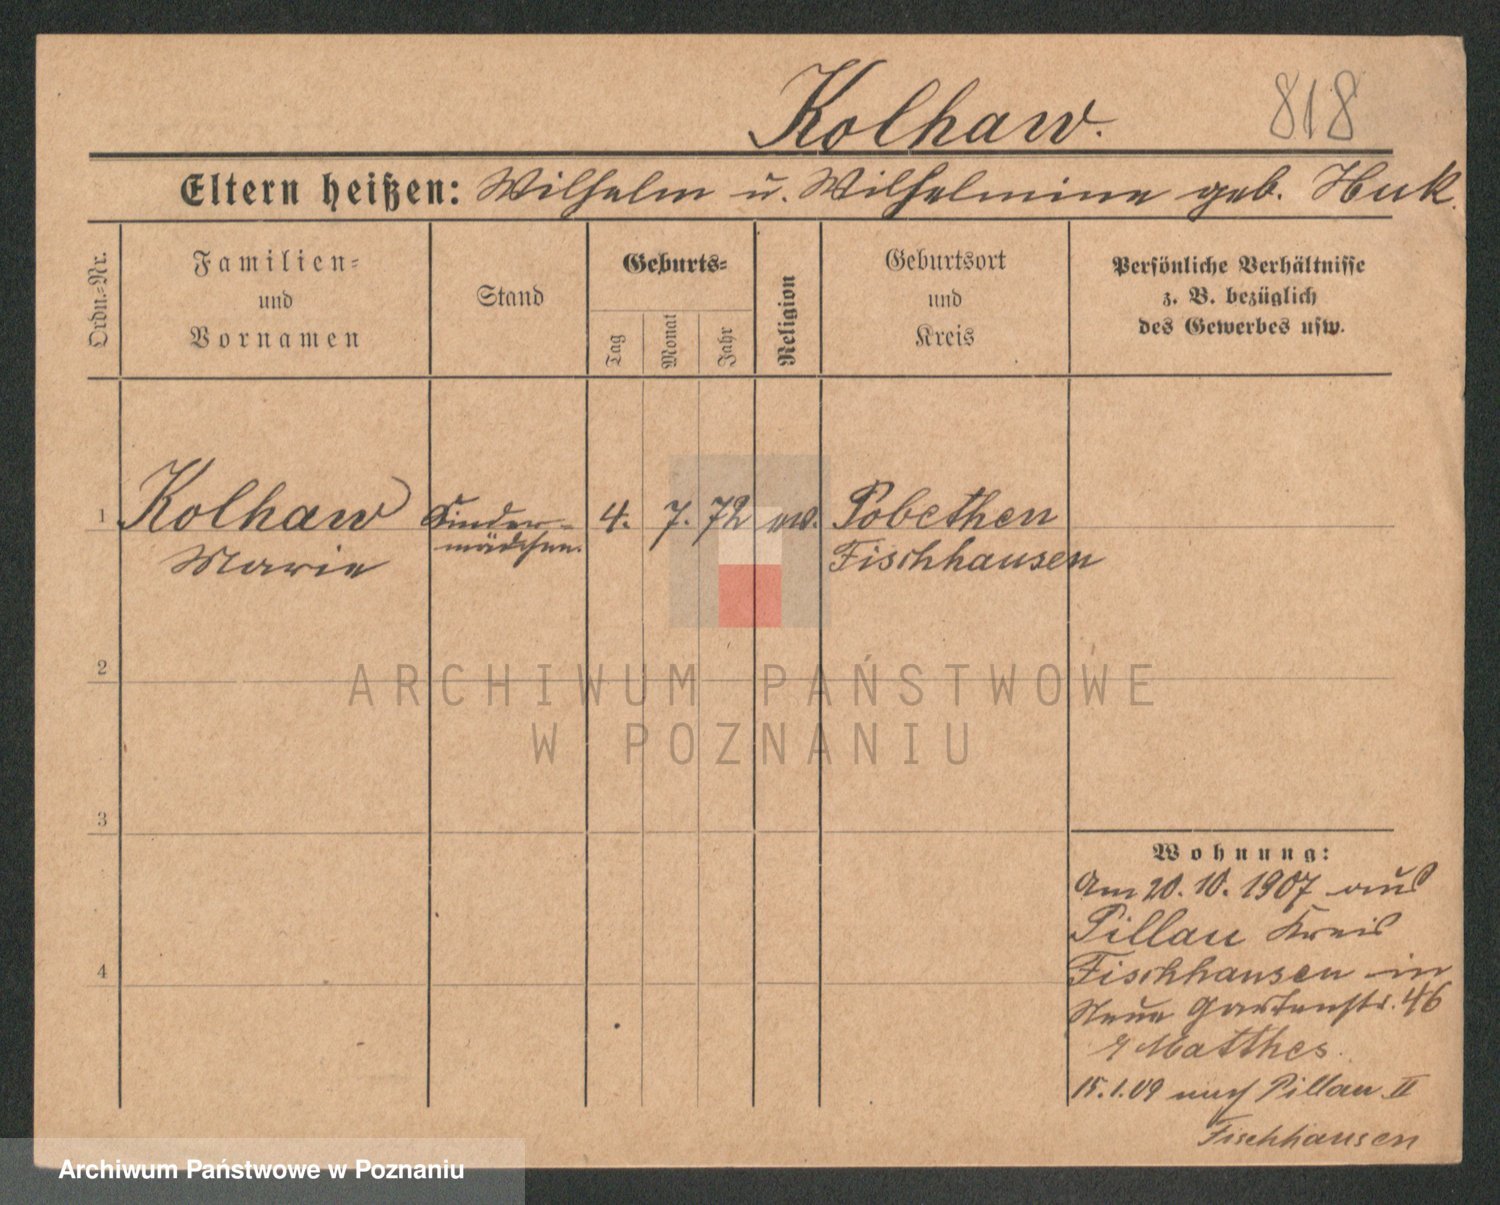 Kolhaw. 818
Eltern heißen: Wilhelm u. Wilhelmine geb. Huk.
Ordn.-Nr.
Familien-
und
Vornamen
Stand
Geburts-
Tag
Monat
Jahr
Religion
Geburtsort
und
Kreis
Persönliche Verhältnisse
z. B. bezüglich
des Gewerbes usw.
1 Kolhaw Kinder- 4. 7. 72 ev. Pobethen
Marie mädchen. Fischhausen
2
ARCHIWUM PAŃSTWOWE
W POZNANIU
3
Wohnung:
Am 20. 10. 1907 aus
Pillau Kreis
4 Fischhausen in
Neue Gartenstr. 46
Matthes.
15.1.09 nach Pillau II
Fischhausen
Archiwum Państwowe w Poznaniu